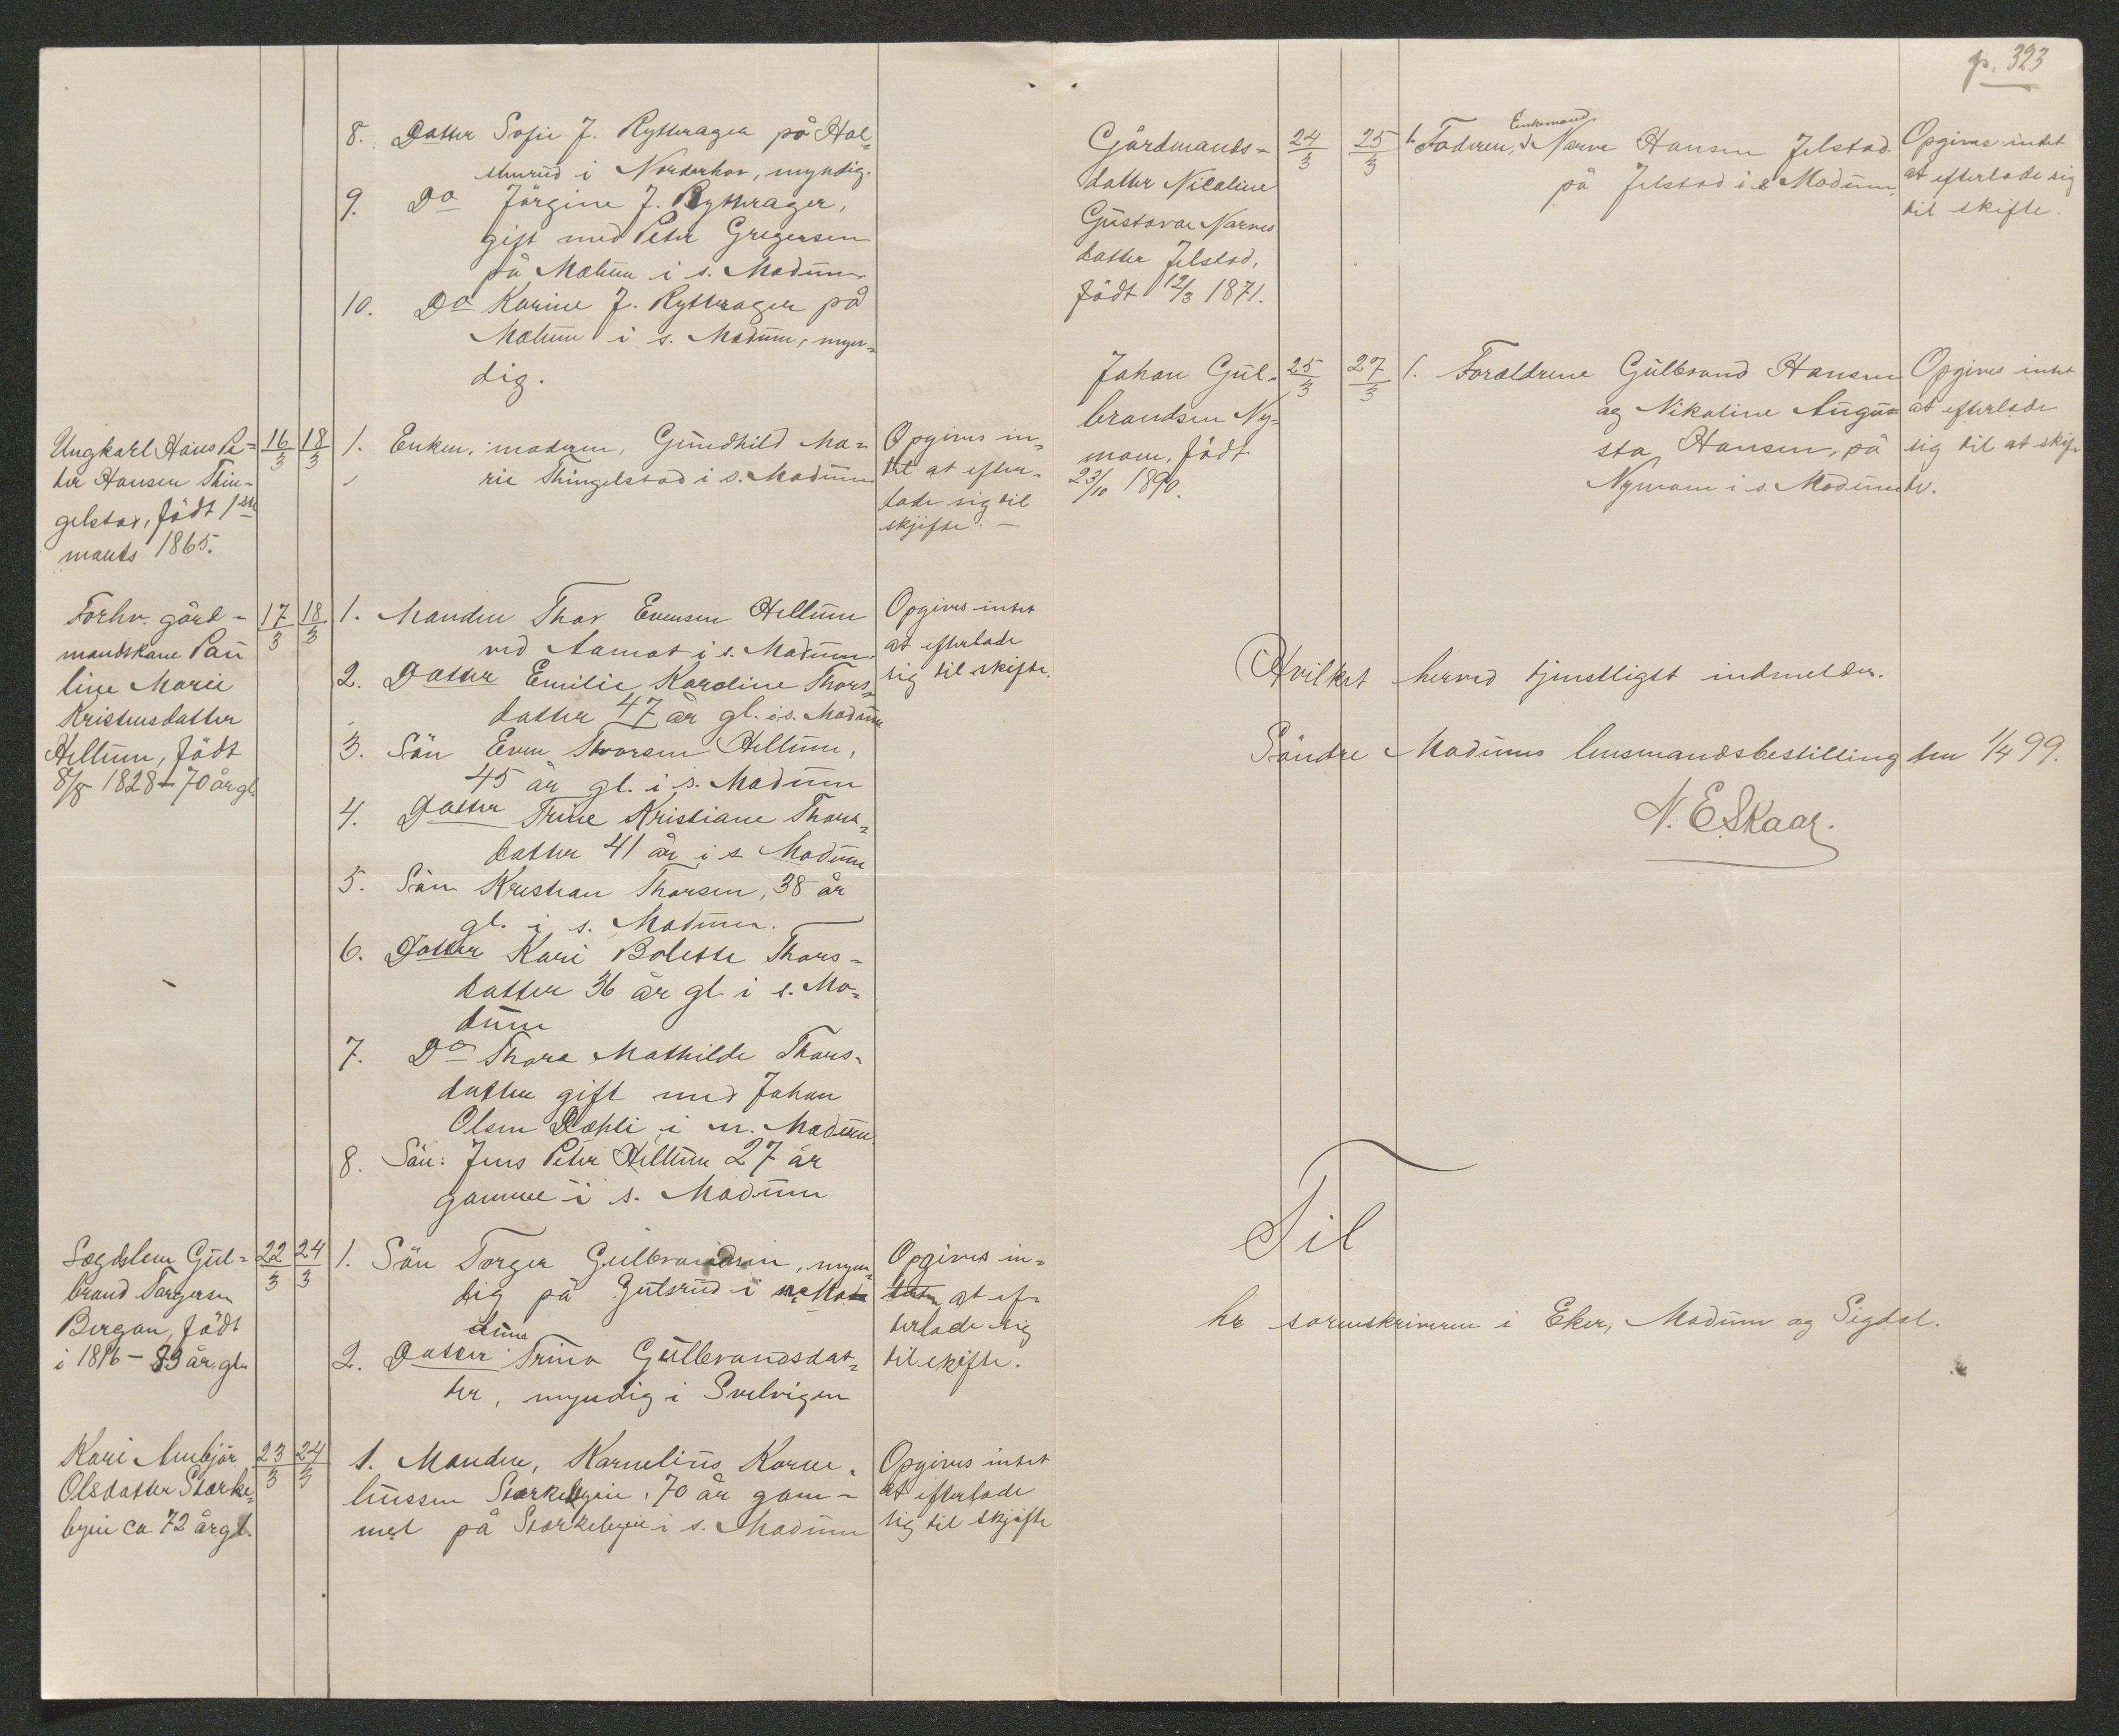 8. Datter Sofie J. Rytterager på Hal=
sterud i Norderhov, myndig.
9. Do Jörgine J. Rytterager,
gift med Peter Gregersen
på Mælum i s. Modum
10. Do Karine J. Rytterager på
Mælum i s. Modum, myn=
dig.
Ungkarl Hans Pe=
ter Hansen Thin=
gelstad, födt 1ste
mants 1865.
16/3 18/3
1. Enken, moderen, Gundhild Ma=
rie Thingelstad i s. Modum
Opgives in=
tet at efter=
lade sig til
skjifte. —
Forhv. gård=
mandskone Pau
line Marie
Kristensdatter
Hellum, födt
8/8 1828 – 70 år gl.
17/3 18/3
1. Manden Thor Evensen Hellum
ved Aamot i s. Modum.
2. Datter Emilie Karoline Thors=
datter 47 år gl. i s. Modum
3. Sön Even Thorsen Hellum,
45 år gl. i s. Modum
4. Datter Trine Kristiane Thors=
datter 41 år i s Modum
5. Sön Kristian Thorsen, 38 år
gl. i s. Modum.
6. Datter Kari Bolette Thors=
datter 36 år gl i s. Mo=
dum
7. Do Thora Mathilde Thors=
datter gift med Johan
Olsen Dæhli i n. Modum.
8. Sön: Jens Peter Hellum 27 år
gammel i s. Modum
Opgives intet
at efterlade
sig til skifte.
Lægdslem Gul=
brand Torgersen
Bergan, födt
i 1816 – 83 år gl.
22/3 24/3
1. Sön Torger Gulbrandsen, myn=
dig på Gulsrud i n. Mo
dum
2. Datter Trina Gulbrandsdat=
ter, myndig i Svelvigen
Opgives in=
tet at ef=
terlade sig
til skifte.
Kari Ambjör
Olsdatter Stærke=
byen ca. 72 år gl.
23/3 24/3
1. Manden, Kornelius Korne=
liussen Stærkebyen, 70 år gam=
mel på Stærkebyen i s. Modum
Opgives intet
at efterlade
sig til skjifte
p. 323
Gårdmands=
datter Nicoline
Gustava Narves
datter Jelstad,
födt 12/3 1871.
24/3 25/3
Enkemand
1. Faderen, Narve Hansen Jelstad.
på Jelstad i s Modum.
Opgives intet
at efterlade sig
til skifte.
Johan Gul=
brandsen Ny=
moen, födt
23/10 1890.
25/3 27/3
1. Forældrene Gulbrand Hansen
og Nikoline Augu=
sta Hansen, på
Nymoen i s. Modum
Opgives intet
at efterlade
sig til at skif=
te.
Hvilket herved tjenstligst indmeldes.
Söndre Modums lensmandsbestilling den 1/4 99.
N. E. Skaar.
Til
hr sorenskriveren i Eker, Modum og Sigdal.